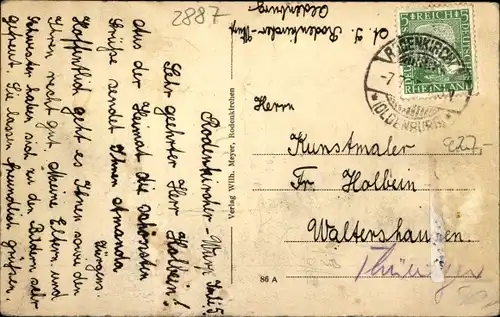 2887
A. J. Rodenkircher-Wurp
Oldenburg
Rodenkircher-Wurp, Juli 5
Sehr geehrter Herr Holbein!
Aus der Heimat die schönsten
Grüße sendet Ihnen Amanda
Jürgens.
Hoffentlich geht es Ihnen sowie den
Ihren recht gut. Meine Eltern und
Schwester haben sich zu den Bildern sehr
gefreut. Sie lassen freundlich grüßen.
Verlag Wilh. Meyer, Rodenkirchen
86 A
5 REICH 5
DEUTSCHES
RHEINLAND
RODENKIRCHEN
-7.
*(OLDENBURG)*
Herrn
Kunstmaler
Fr. Holbein
Waltershausen
Thüringen